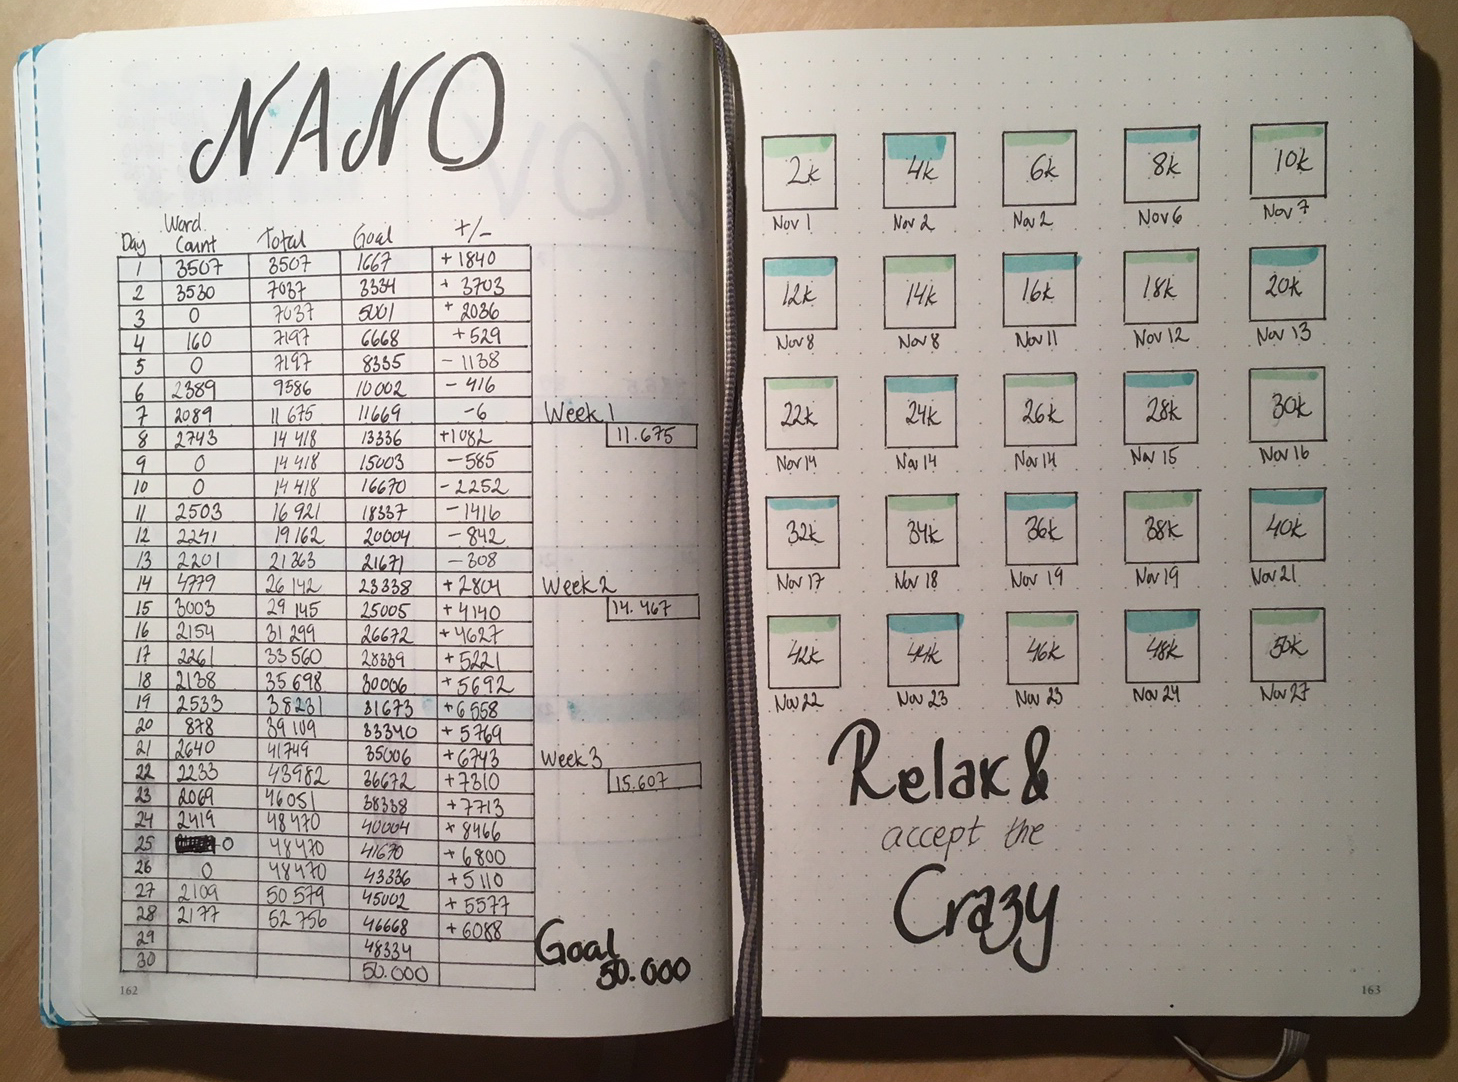 NANO
Day Word Count Total Goal +/-
1 3507 3507 1667 +1840
2 3530 7037 3334 + 3703
3 0 7037 5001 + 2036
4 160 7197 6668 +529
5 0 7197 8335 - 1138
6 2389 9586 10002 - 416
7 2089 11 675 11669 -6 Week 1
8 2743 14 418 13336 +1082 11.675
9 0 14 418 15003 -585
10 0 14 418 16670 -2252
11 2503 16 921 18337 -1416
12 2241 19 162 20004 -842
13 2201 21 363 21671 -308
14 4779 26 142 23338 +2804 Week 2
15 3003 29 145 25005 +4140 14.467
16 2154 31 299 26672 +4627
17 2261 33 560 28339 +5221
18 2138 35 698 30006 +5692
19 2533 38231 31673 +6558
20 878 39 109 33340 + 5769
21 2640 41749 35006 +6743 Week 3
22 2233 43982 36672 +7310 15.607
23 2069 46051 38338 +7713
24 2419 48 470 40004 + 8466
25 0 48470 41670 + 6800
26 0 48470 43336 +5110
27 2109 50 579 45002 + 5577
28 2177 52 756 46668 +6088
29 48334
30 50.000
Goal
50.000
162
2k 4k 6k 8k 10k
Nov 1 Nov 2 Nov 2 Nov 6 Nov 7
12k 14k 16k 18k 20k
Nov 8 Nov 8 Nov 11 Nov 12 Nov 13
22k 24k 26k 28k 30k
Nov 14 Nov 14 Nov 14 Nov 15 Nov 16
32k 34k 36k 38k 40k
Nov 17 Nov 18 Nov 19 Nov 19 Nov 21
42k 44k 46k 48k 50k
Nov 22 Nov 23 Nov 23 Nov 24 Nov 27
Relax &
accept the
Crazy
163